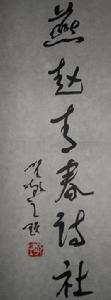 燕赵青春诗社